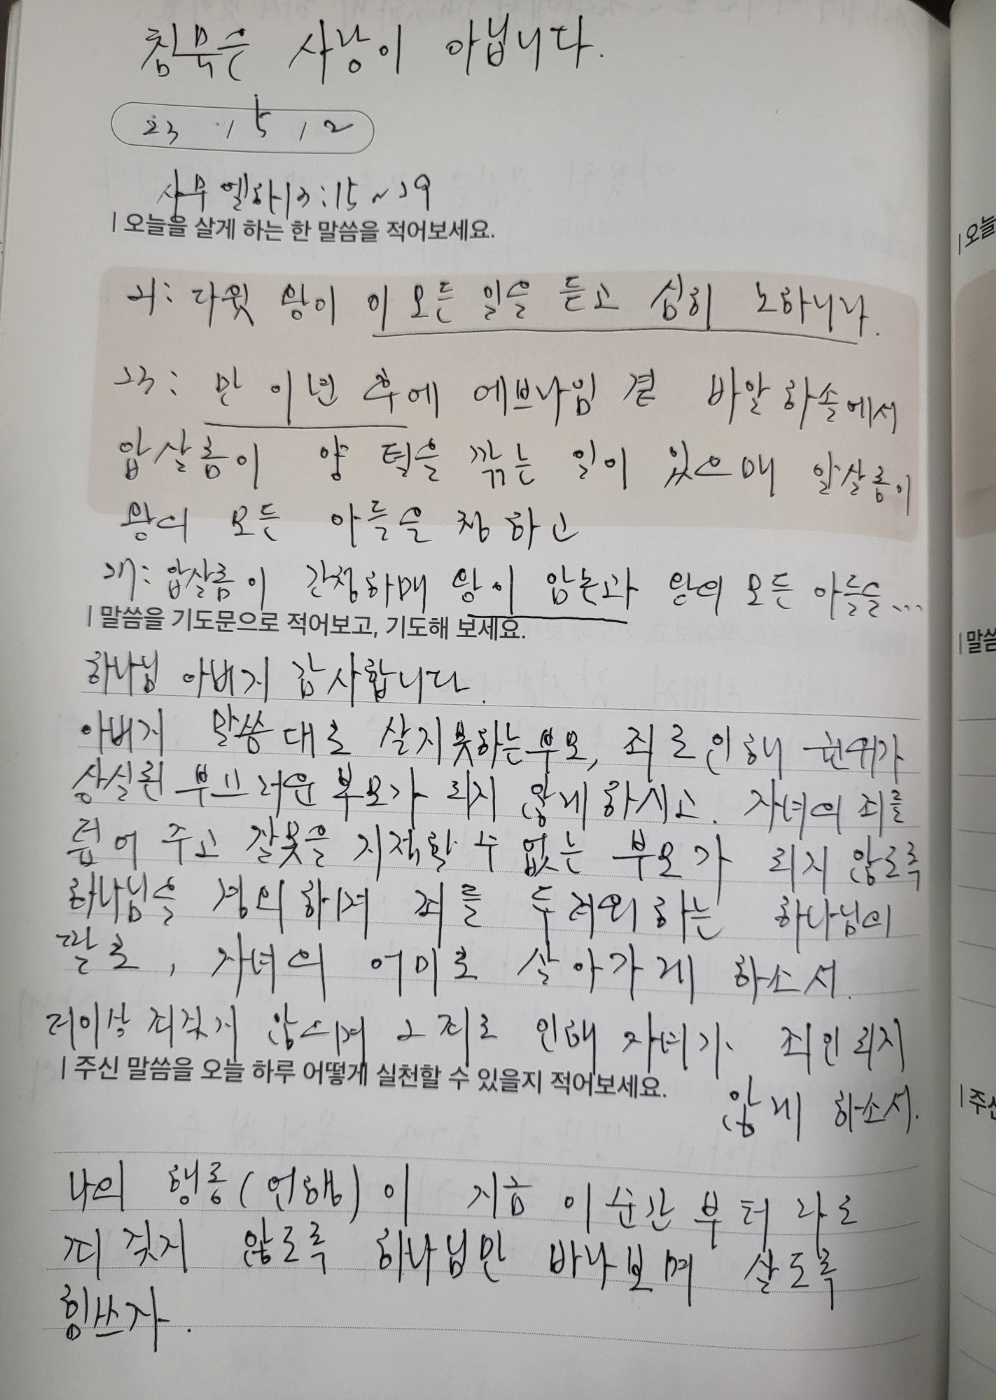 침묵은 사랑이 아닙니다.
23 / 5 / 2
사무엘하13:15~29
| 오늘을 살게 하는 한 말씀을 적어보세요.
21: 다윗 왕이 이 모든 일을 듣고 심히 노하니라.
23: 만 이년 후에 에브라임 곁 바알하솔에서
압살롬이 양 털을 깎는 일이 있으매 압살롬이
왕의 모든 아들을 청하고
27: 압살롬이 간청하매 왕이 암논과 왕의 모든 아들을...
| 말씀을 기도문으로 적어보고, 기도해 보세요.
하나님 아버지 감사합니다.
아버지 말씀대로 살지못하는부모, 죄로인해 권위가
상실된 부끄러운 부모가 되지 않게하시고. 자녀의 죄를
덮어 주고 잘못을 지적할 수 없는 부모가 되지 않도록
하나님을 경외하며 죄를 두려워하는 하나님의
딸로, 자녀의 어미로 살아가게 하소서.
더이상 죄짓지 않으며 그 죄로 인해 자녀가 죄인되지
않게 하소서.
| 주신 말씀을 오늘 하루 어떻게 실천할 수 있을지 적어보세요.
나의 행동(언행)이 지금 이순간부터 라도
죄 짓지 않도록 하나님만 바라보며 살도록
힘쓰자.
| 오늘
| 말씀
| 주신